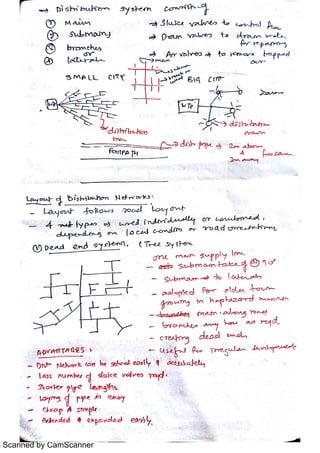 → Distribution system consisting
① Mains → Sluice valves to control flow
② Submains → Drain valves to drain water
for repairing
③ branches
or → Air valves → to remove trapped
④ laterals air
main
submain
SMALL CITY branch
BIG CITY
WTP
2 km
→ distribution
main
distribution
main
FOOTPATH
→ distn pipe → 2m above
&
3m away
from sewer
Layout of Distribution Networks:
- Layout follows road layout
- 4 types → used individually or combined,
depending on local condition & road orientations
① Dead end system, (Tree System
one main supply line
- submain takeoff @ 90°
- submain → to laterals
- adopted for older town
growing in haphazard manner
- main along road
- branches any how as reqd.
- creating dead ends
- useful for irregular developments
ADVANTAGES:
- Distn Network can be solved easily & accurately
- Less number of sluice valves reqd.
- Shorter pipe lengths
- Laying of pipe is easy
- Cheap & simple
- Extended & expanded easily.
Scanned by CamScanner